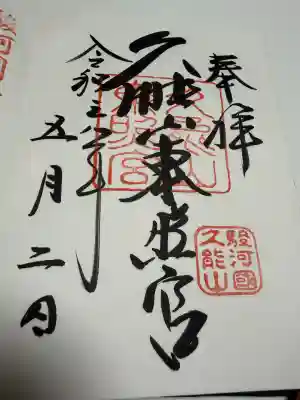 奉拝
久能山東照宮
駿河國
久能山
令和三年
五月二日